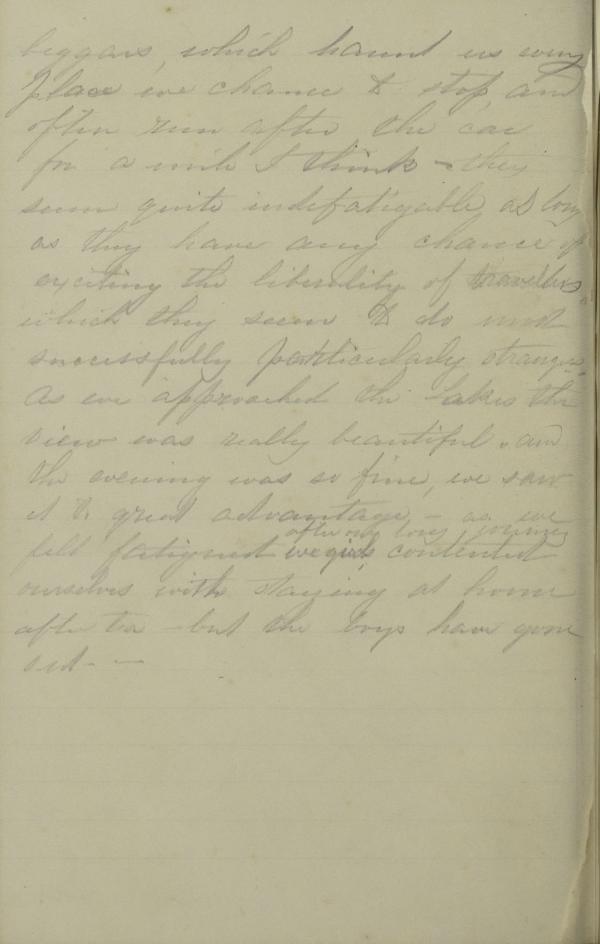 beggars, which haunt us every
place we chance to stop, and
often run after the car
for a mile I think - they
seem quite indefatigable as long
as they have any chance of
exciting the liberality of travellers
which they seem to do most
successfully particularly strangers.
As we approached the Lakes the
view was really beautiful. and
the evening was so fine, we saw
it to great advantage - as we
after our long journey
felt fatigued we girls contented
ourselves with staying at home
after tea - but the boys have gone
out. —